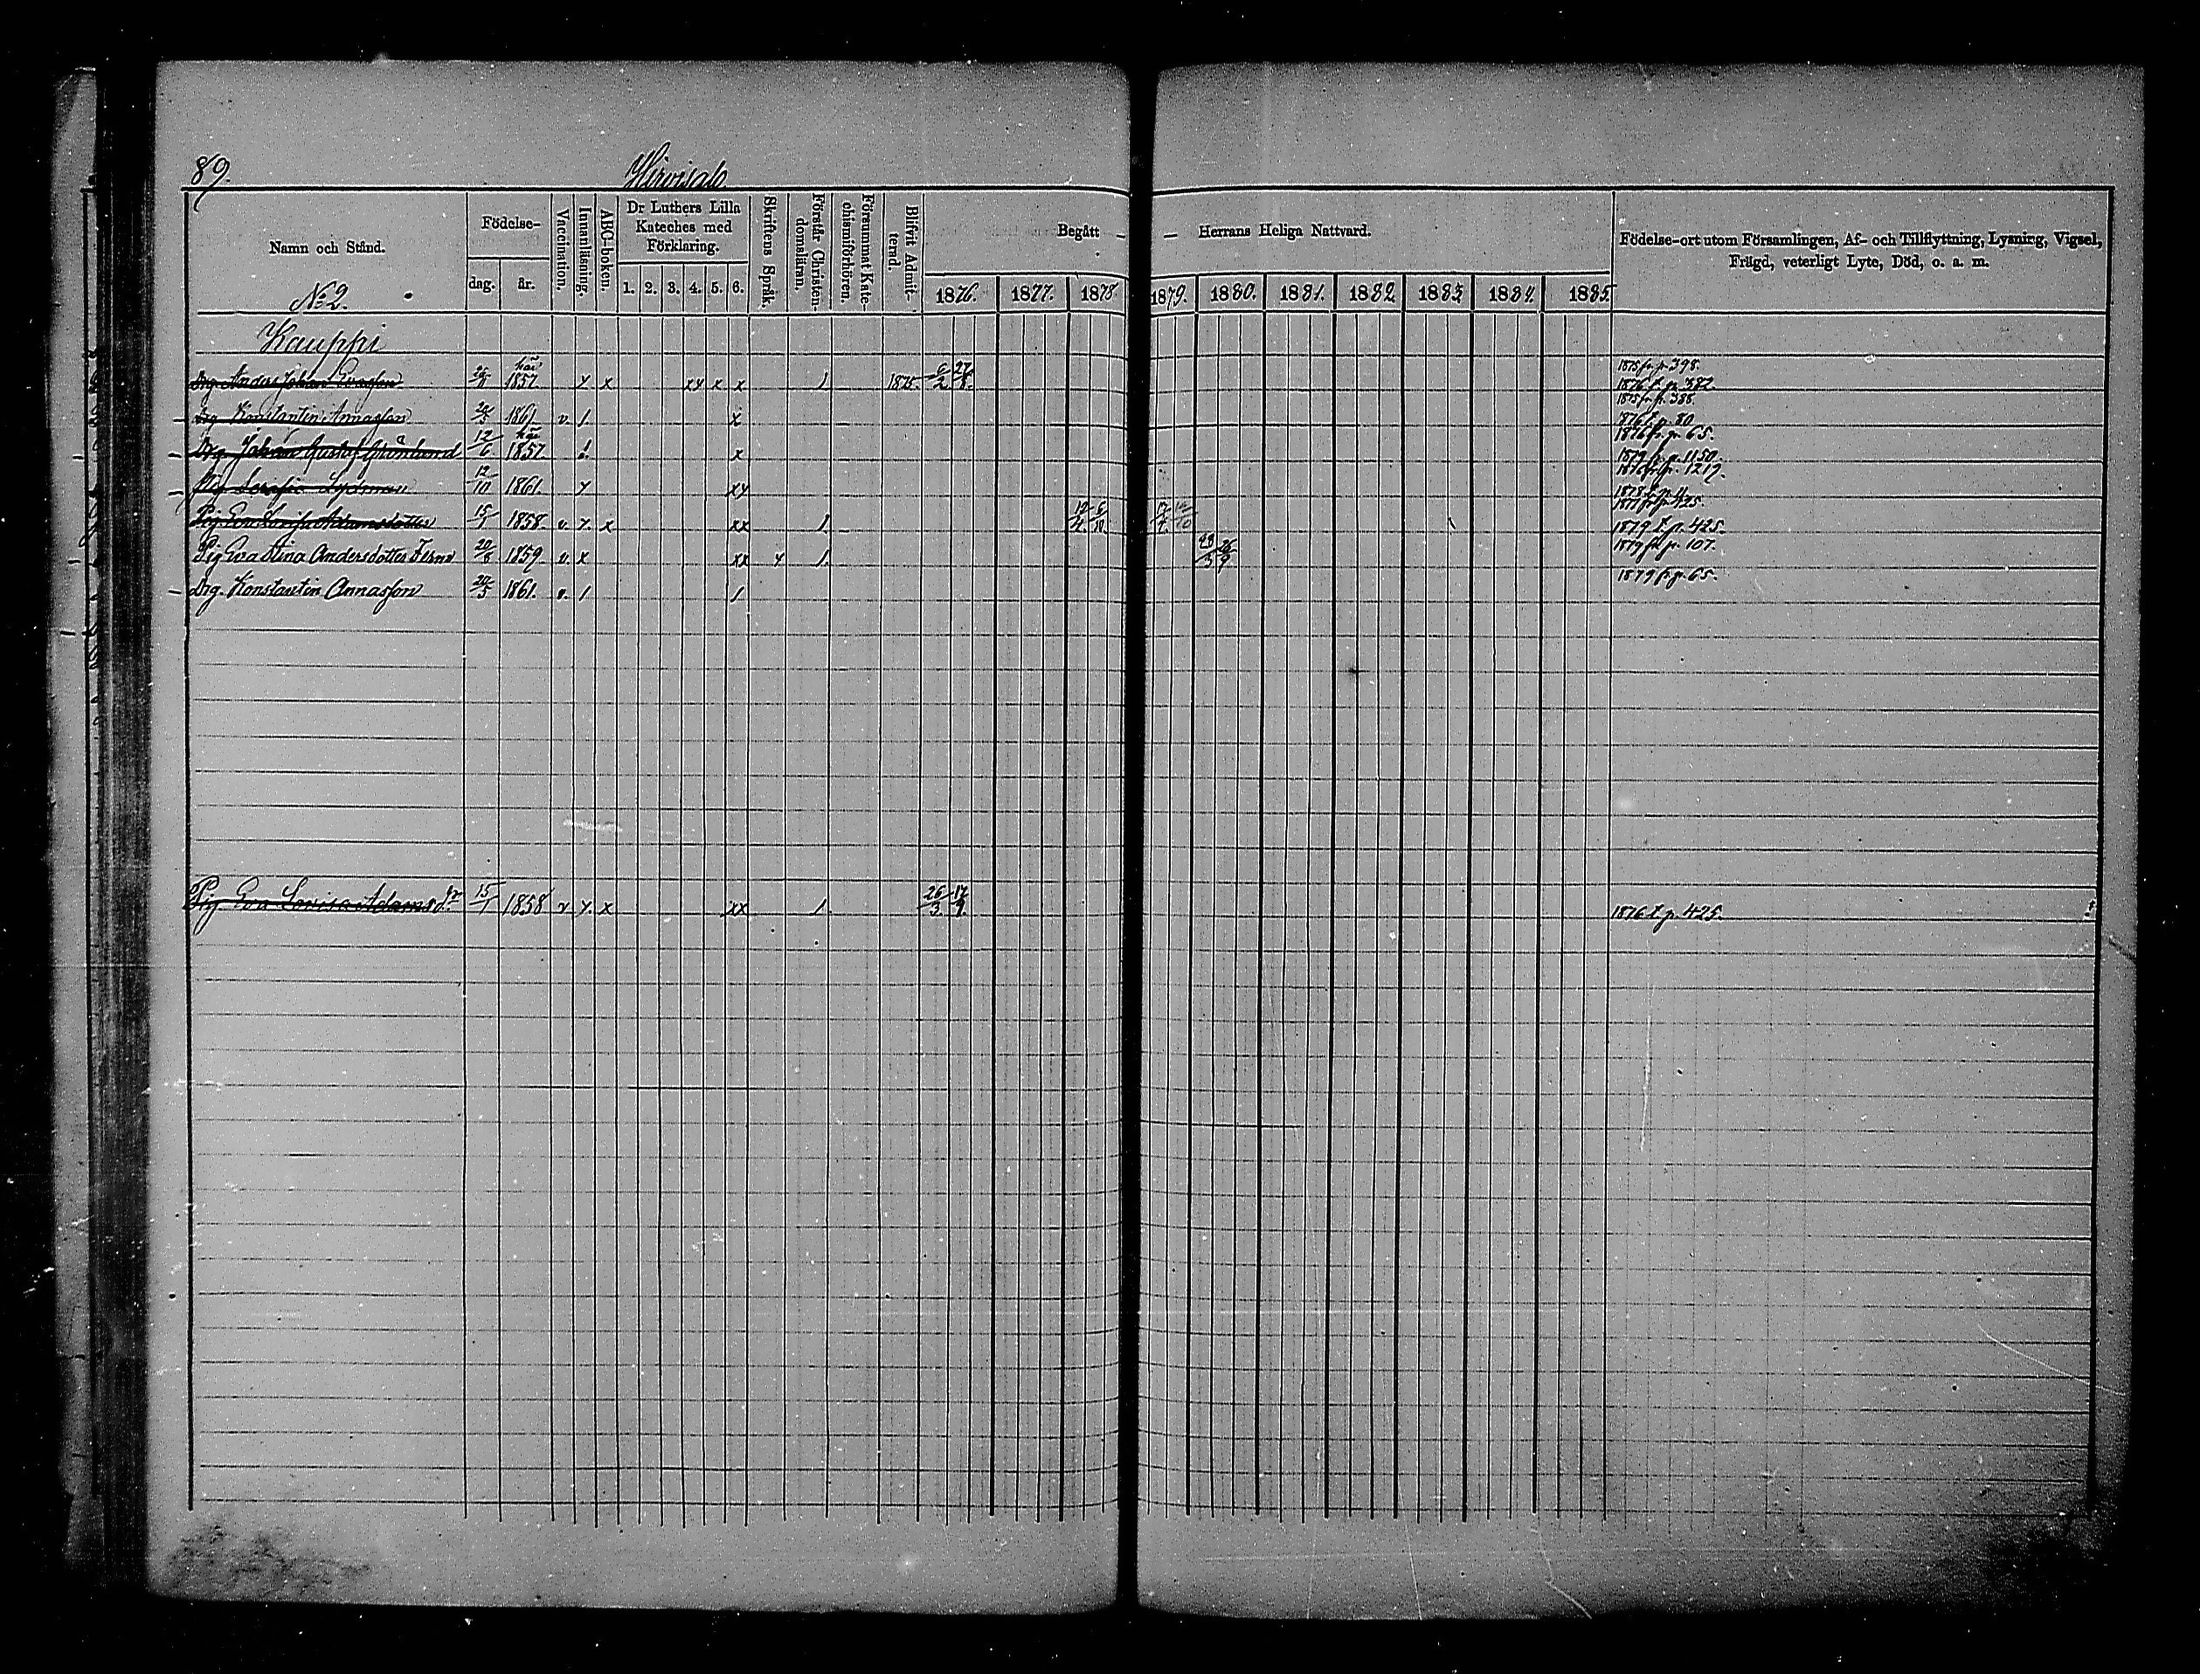 89.
Hirvisalo
Namn och Stånd.
Födelse-
dag.
år.
Vaccination.
Innanläsning.
ABC-boken.
Dr Luthers Lilla Kateches med Förklaring.
1. 2. 3. 4. 5. 6.
Skriftens Språk.
Förstår Christendomsläran.
Försummat Katechismiförhören.
Blifvit Admitterad.
Begått — — Herrans Heliga Nattvard.
1876. 1877. 1878 1879. 1880. 1881. 1882 1883 1884. 1885.
Födelse-ort utom Församlingen, Af- och Tillflyttning, Lysning, Vigsel, Frägd, veterligt Lyte, Död, o. a. m.
No 2.
Kauppi
1875 fr. p. 398.
Drg. Anders Johan Evasson 1857. x x xy x x 1. 1875. 6/2 27/8. 1876 t. p. 382
1875 fr. p. 388.
Drg. Konstantin Annasson 1861. v. 1. x 1876 t. p. 80
1876 fr. p. 65.
Drg. Johan Gustaf Grönlund 12/6 1857. x 1879 fr. p. 1150.
1876 fr. p. 1219.
12/10 1861. y xy 1878
1877 fr. p. 425.
Pig. Eva Lovisa Adamsdotter 15/1 1858 v. y. x xx 1. 12/4 6/10 1879 t. p. 425.
1879 fr. p. 107.
Pig Eva Stina Andersdotter 20/8 1859. v. x xx y 1. 28/3
1879 fr. p. 65.
Drg. Konstantin Annasson 1861. v. 1 1.
Pig Eva Lovisa Adamsdr 15/1 1858 v y. x xx 1. 26/3. 17/9. 1876 t. p. 425.